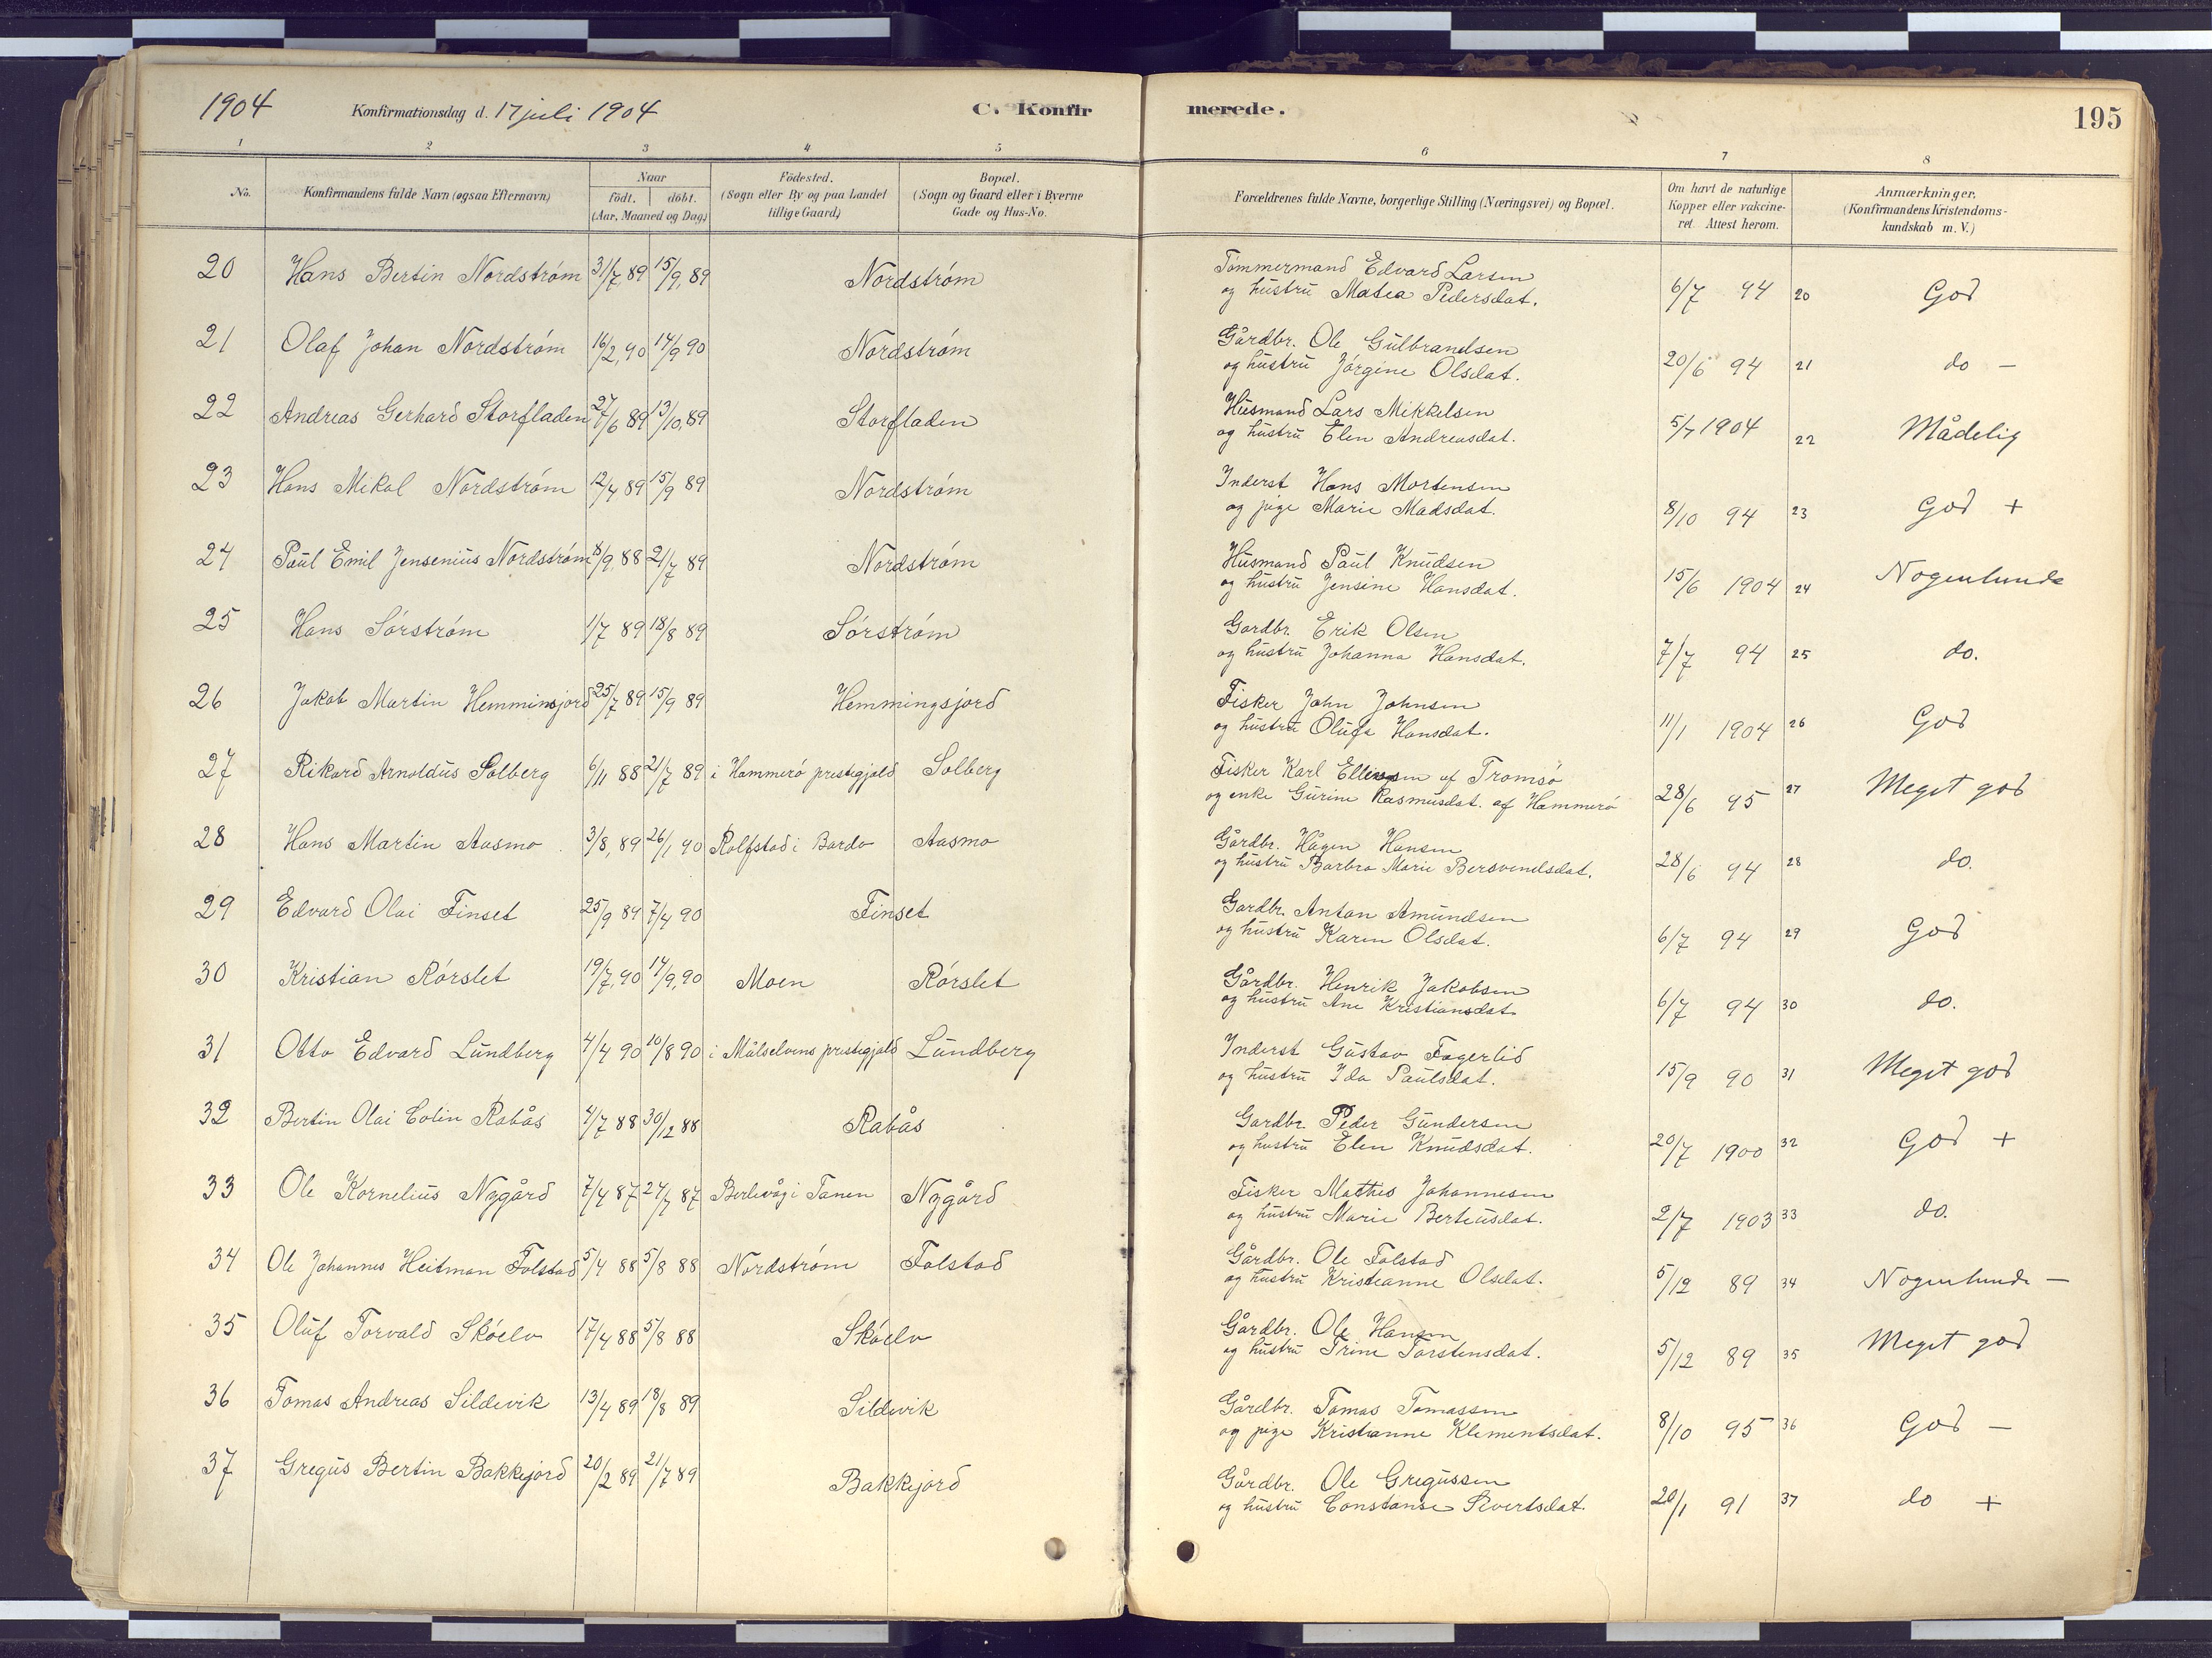 1904 Konfirmationsdag d. 17 juli 1904 C. Konfirmerede. 195
1 2 3 4 5 6 7 8
No. Konfirmandens fulde Navn (ogsaa Efternavn) Naar født. døbt. (Aar, Maaned og Dag) Fødested. (Sogn eller By og paa Landet tillige Gaard) Bopæl. (Sogn og Gaard eller i Byerne Gade og Hus-No. Forældrenes fulde Navne, borgerlige Stilling (Næringsvei) og Bopæl. Om havt de naturlige Kopper eller vakcineret Attest herom. Anmærkninger, (Konfirmandens Kristendomskundskab m. V.)
20 Hans Bertin Nordström 31/7, 89 15/9, 89 Nordström Tømmermand Edvard Larsen
og hustru Matea Pedersdat. 6/7 94 20 God
21 Olaf Johan Nordström 16/2, 90 14/9 90 Nordström Gårdbr. Ole Gulbrandsen
og hustru Jörgine Olsdat. 20/6 94 21 do —
22 Andreas Gerhard Storfladen 27/6 89 13/10, 89 Storfladen Husmand Lars Mikkelsen
og hustru Elen Andreasdat. 5/7 1904 22 Mådelig
23 Hans Mikal Nordström 12/4 89 15/9 89 Nordström Inderst Hans Mortensen
og pige Marie Madsdat. 8/10 94 23 God +
24 Paul Emil Jensenius Nordström 8/9, 88 21/7 89 Nordström Husmand Paul Knudsen
og hustru Jensine Hansdat. 15/6 1904 24 Nogenlunde
25 Hans Sörström 1/7 89 18/8 89 Sörström Gardbr. Erik Olsen
og hustru Johanna Hansdat. 7/7 94 25 do.
26 Jakob Martin Hemminsjord 25/7 89 15/9 89 Hemmingsjord Fisker John Johnsen
og hustru Olufa Hansdat. 11/1 1904 26 God
27 Rikard Arnoldus Solberg 6/11 88 21/7 89 i Hammerö prestegjæld Solberg Fisker Karl Ellingsen af Tromsö
og enke Gurine Rasmusdat. af Hammerö 28/6 95 27 Meget god
28 Hans Martin Aasmo 3/8, 89 26/1 90 Rolfstad i Bardo Aasmo Gårdbr. Hågen Hansen
og hustru Barbro Marie Bersvendsdat. 28/6 94 28 do.
29 Edvard Olai Finset 25/9 89 7/4 90 Finset Gardbr. Anton Amundsen
og hustru Karen Olsdat. 6/7 94 29 God
30 Kristian Rörslet 19/7, 90 14/9, 90 Moen Rörslet Gårdbr. Henrik Jakobsen
og hustru Ane Kristiansdat. 6/7 94 30 do.
31 Otto Edvard Lundberg 4/4 90 10/8 90 i Målselvens prestegjæld Lundberg Inderst Gustav Fagerlid
og hustru Ida Paulsdat. 15/9 90 31 Meget god
32 Bertin Olai Colin Rabås 4/7 88 30/12 88 Rabås Gardbr. Peder Gundersen
og hustru Elen Knudsdat. 20/7 1900 32 God +
33 Ole Kornelius Nygård 7/4 87 24/7 87 Berlevåg i Tanen Nygård Fisker Mathis Johannesen
og hustru Marie Berteusdat. 2/7 1903 33 do.
34 Ole Johannes Heitman Folstad 5/4 88 5/8 88 Nordström Folstad Gårdbr. Ole Folstad
og hustru Kristianne Olsdat. 5/12 89 34 Nogenlunde —
35 Oluf Torvald Sköelv 17/4 88 5/8 88 Sköelv Gårdbr. Ole Hansen
og hustru Trine Torstensdat. 5/12 89 35 Meget god
36 Tomas Andreas Sildevik 13/4 89 18/8 89 Sildevik Gårdbr. Tomas Tomassen
og pige Kristianne Klementsdat. 8/10 95 36 God —
37 Gregus Bertin Bakkejord 20/2 89 21/7 89 Bakkejord Gårdbr. Ole Gregussen
og hustru Constanse Sivertsdat. 20/1 91 37 do +